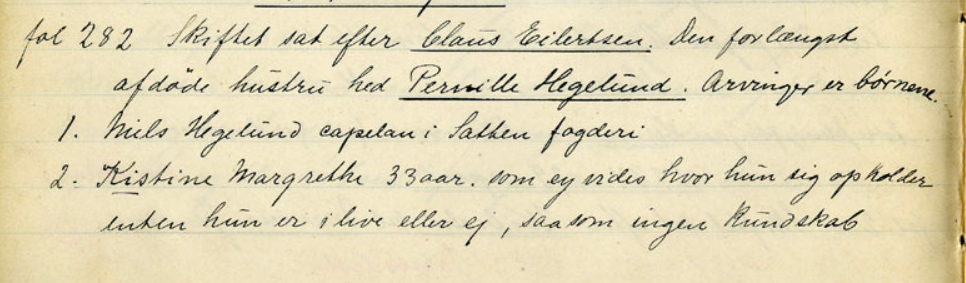 fol 282 Skiftet sat efter Claus Eilertsen. Den forlængst
afdøde hustru hed Pernille Hegelund. Arvinger er børnene.
1. Niels Hegelund capelan i Salten fogderi
2. Kistine Margrethe 33 aar. som ey vides hvor hun sig opholder
enten hun er i live eller ej, saasom ingen kundskab